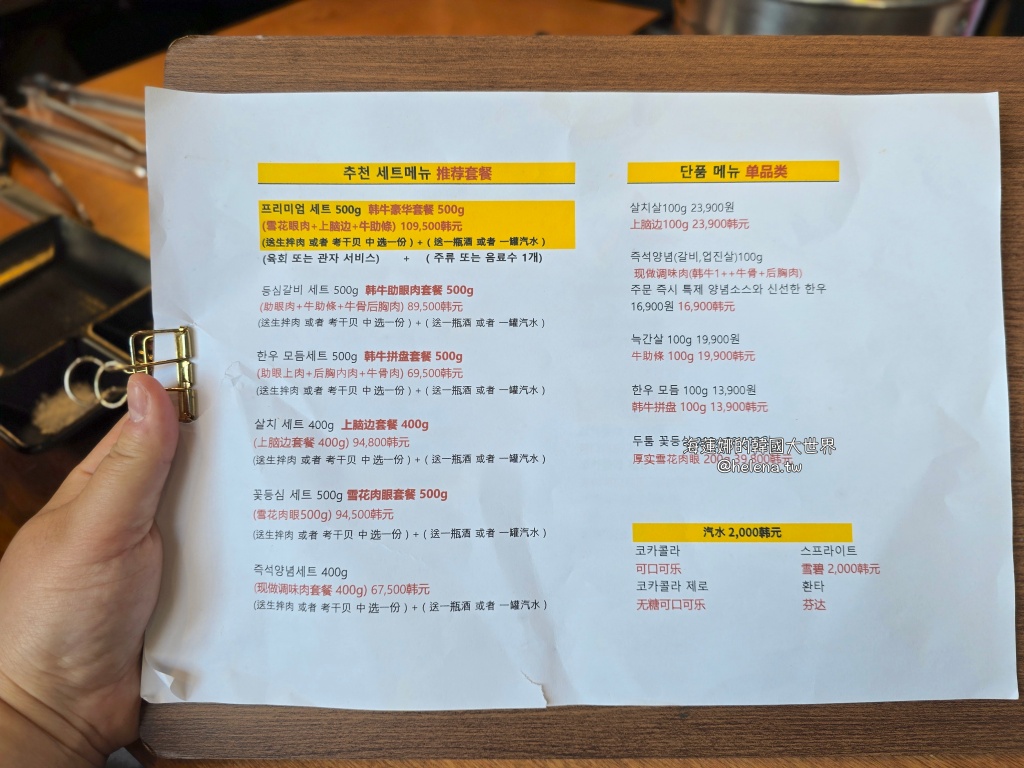 추천 세트메뉴 推荐套餐
프리미엄 세트 500g 韩牛豪华套餐 500g
(雪花眼肉+上脑边+牛助條) 109,500韩元
(送生拌肉 或者 考干贝 中 选一份 ) + ( 送一瓶酒 或者 一罐汽水 )
(육회 또는 관자 서비스) + ( 주류 또는 음료수 1개)
등심갈비 세트 500g 韩牛助眼肉套餐 500g
(助眼肉+牛助條+牛骨后胸肉) 89,500韩元
(送生拌肉 或者 考干贝 中 选一份 ) + ( 送一瓶酒 或者 一罐汽水 )
한우 모듬세트 500g 韩牛拼盘套餐 500g
(助眼上肉+后胸内肉+牛骨肉) 69,500韩元
(送生拌肉 或者 考干贝 中 选一份 ) + ( 送一瓶酒 或者 一罐汽水 )
살치 세트 400g 上脑边套餐 400g
(上脑边套餐 400g) 94,800韩元
(送生拌肉 或者 考干贝 中 选一份 ) + ( 送一瓶酒 或者 一罐汽水 )
꽃등심 세트 500g 雪花肉眼套餐 500g
(雪花肉眼500g) 94,500韩元
(送生拌肉 或者 考干贝 中 选一份 ) + ( 送一瓶酒 或者 一罐汽水 )
즉석양념세트 400g
(现做调味肉套餐 400g) 67,500韩元
(送生拌肉 或者 考干贝 中 选一份 ) + ( 送一瓶酒 或者 一罐汽水 )
단품 메뉴 单品类
살치살100g 23,900원
上脑边100g 23,900韩元
즉석양념(갈비,업진살)100g
现做调味肉(韩牛1++牛骨+后胸肉)
주문 즉시 특제 양념소스와 신선한 한우
16,900원 16,900韩元
늑간살 100g 19,900원
牛助條 100g 19,900韩元
한우 모듬 100g 13,900원
韩牛拼盘 100g 13,900韩元
두툼 꽃등심
厚实雪花肉眼 200g 39,800韩元
海蓮娜的韓國大世界
@helena.tw
汽水 2,000韩元
코카콜라 스프라이트
可口可乐 雪碧 2,000韩元
코카콜라 제로 환타
无糖可口可乐 芬达